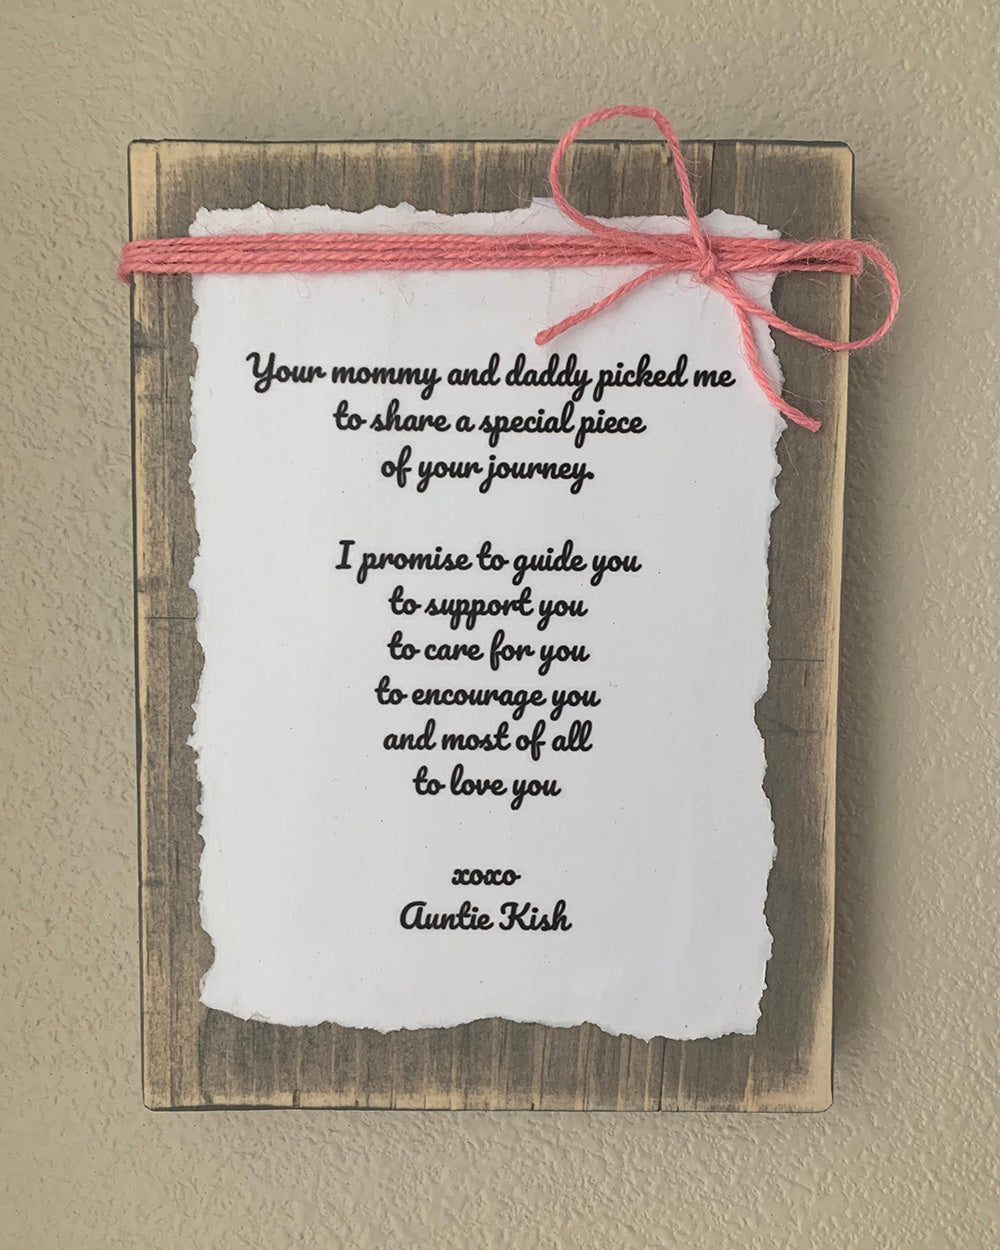 Your mommy and daddy picked me
to share a special piece
of your journey.
I promise to guide you
to support you
to care for you
to encourage you
and most of all
to love you
xoxo
Auntie Kish